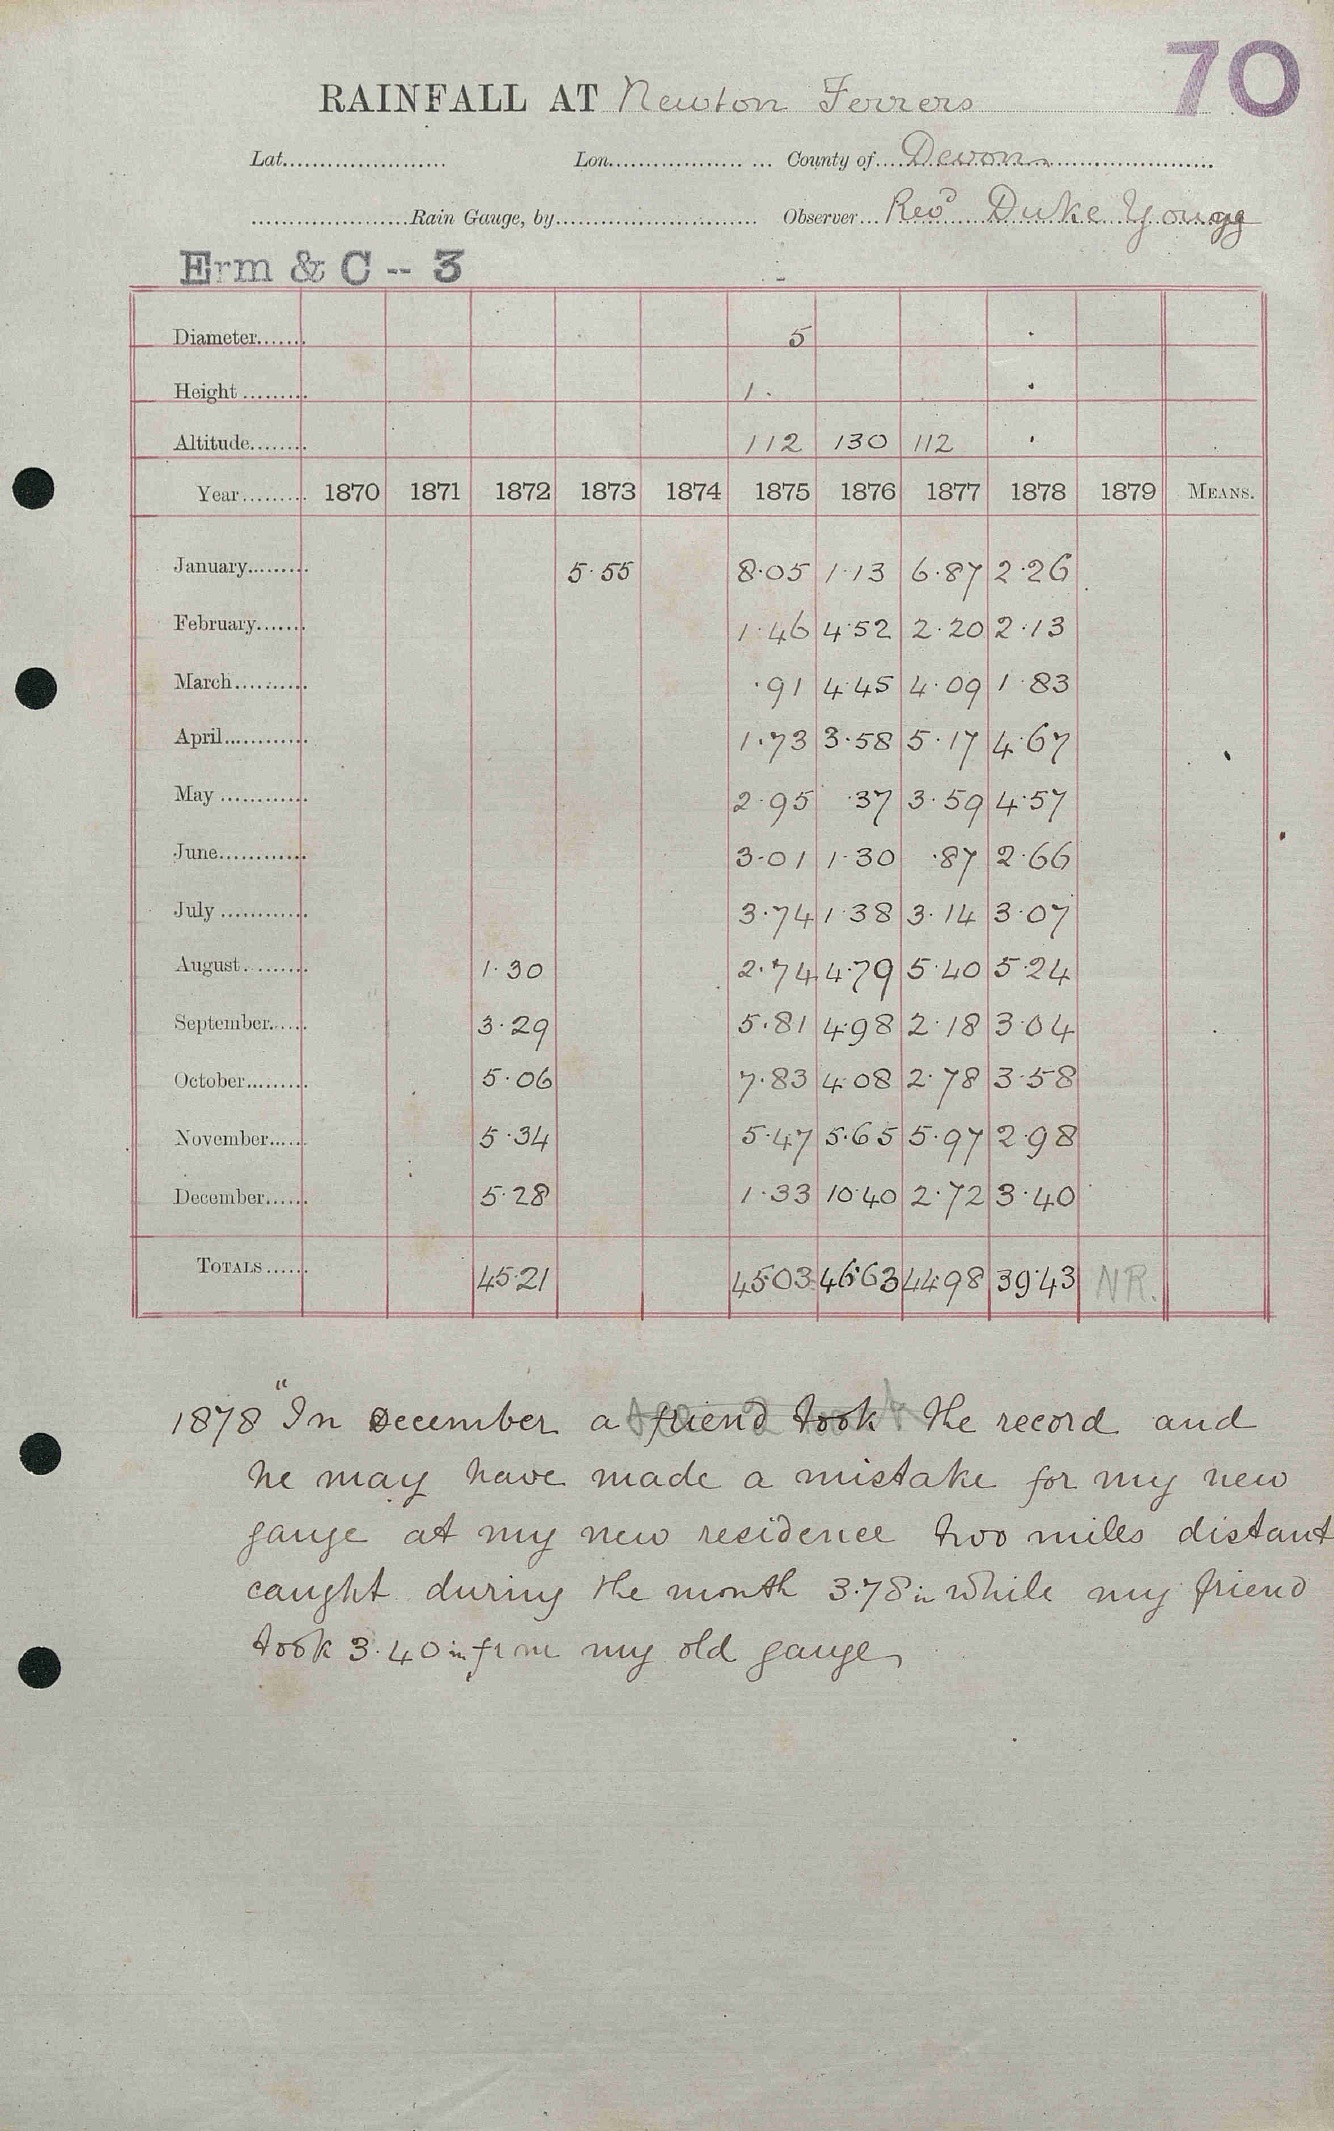 70
RAINFALL AT Newton Ferrers
Lat. Lon. County of Devon
Rain Gauge, by Observer Revd Duke Young
Erm & C -- 3
Diameter 5
Height 1.
Altitude 112 130 112
Year 1870 1871 1872 1873 1874 1875 1876 1877 1878 1879 MEANS.
January 5.55 8.05 1.13 6.87 2.26
February 1.46 4.52 2.20 2.13
March .91 4.45 4.09 1.83
April 1.73 3.58 5.17 4.67
May 2.95 .37 3.59 4.57
June 3.01 1.30 .87 2.66
July 3.74 1.38 3.14 3.07
August 1.30 2.74 4.79 5.40 5.24
September 3.29 5.81 4.98 2.18 3.04
October 5.06 7.83 4.08 2.78 3.58
November 5.34 5.47 5.65 5.97 2.98
December 5.28 1.33 10.40 2.72 3.40
TOTALS 45.21 45.03 46.63 44.98 39.43 NR.
1878 "In December a friend took the record and
he may have made a mistake for my new
gauge at my new residence two miles distant
caught during the month 3.78 in while my friend
took 3.40 in from my old gauge